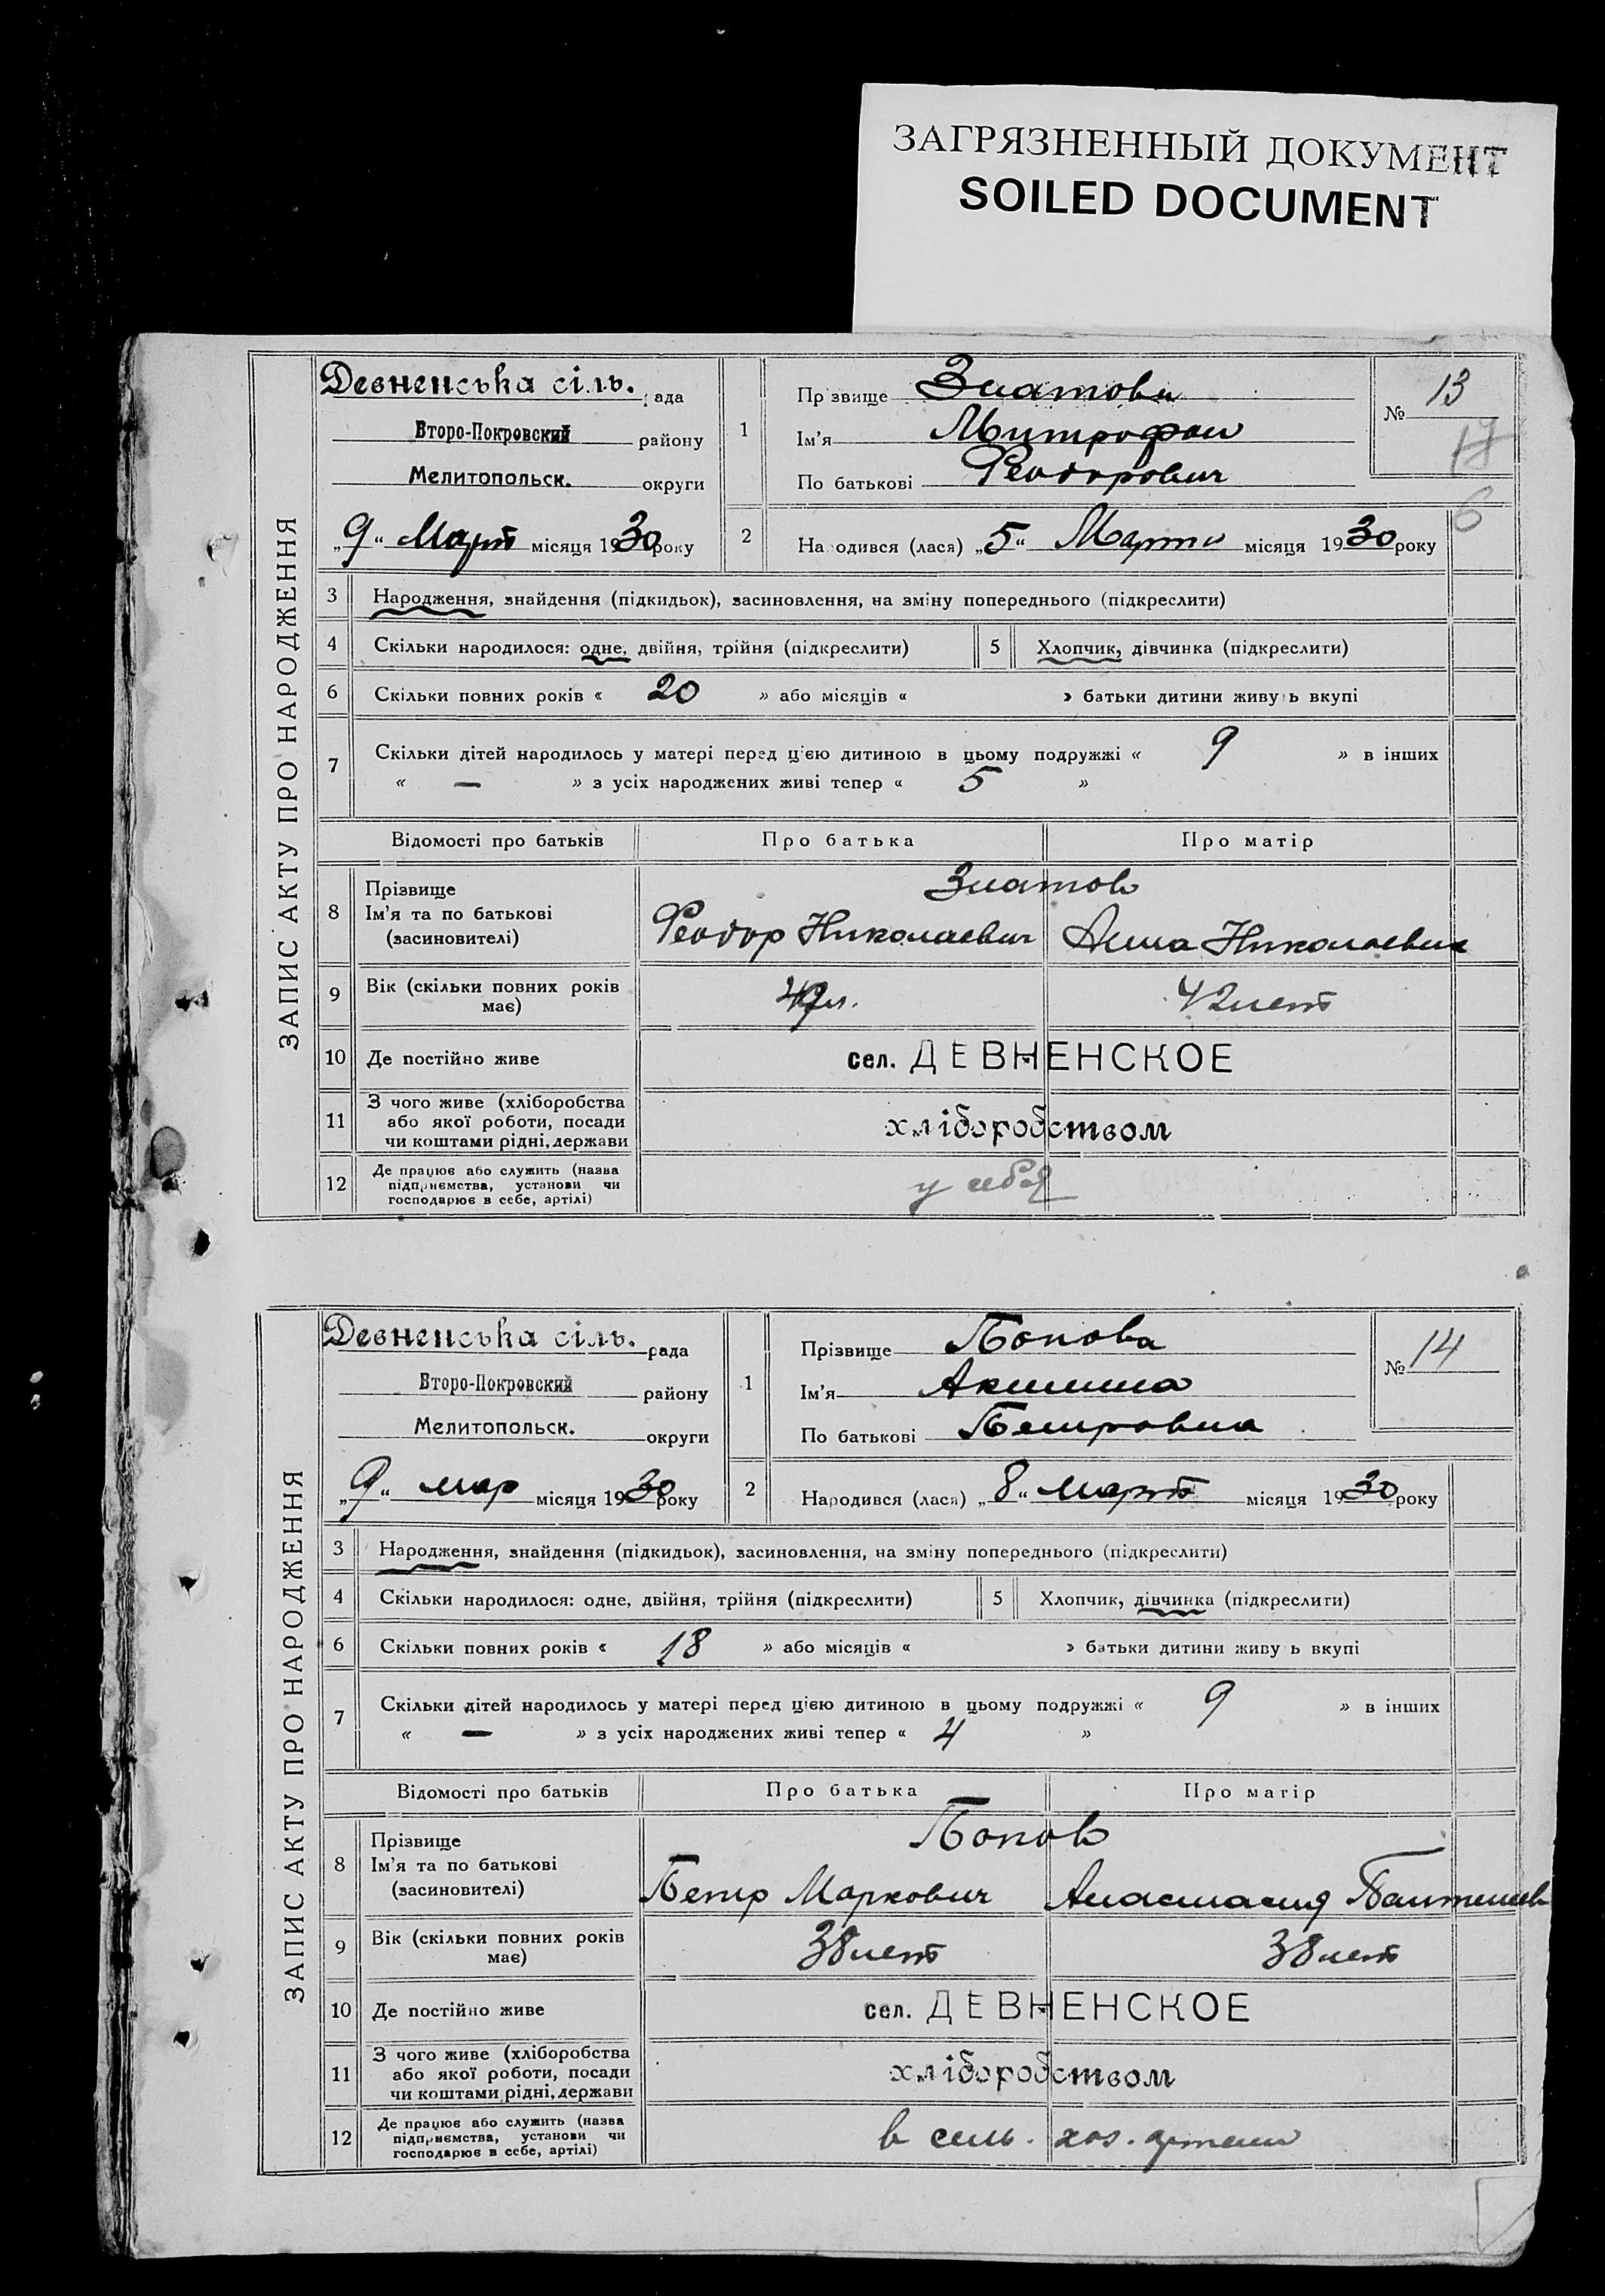 ЗАГРЯЗНЕННЫЙ ДОКУМЕНТ
SOILED DOCUMENT
ЗАПИС АКТУ ПРО НАРОДЖЕННЯ
Девненська сіль. рада
Второ-Покровский району
Мелитопольск. округи
„9“ Март місяця 1930 року
1
Прізвище Златова
Ім'я Митрофан
По батькові Феодорович
№ 13
17
6
2
Народився (лася) „5“ Марта місяця 1930 року
3 Народження, знайдення (підкидьок), засиновлення, на зміну попереднього (підкреслити)
4 Скільки народилося: одне, двійня, трійня (підкреслити) 5 Хлопчик, дівчинка (підкреслити)
6 Скільки повних років « 20 » або місяців « » батьки дитини живуть вкупі
7 Скільки дітей народилось у матері перед цією дитиною в цьому подружжі « 9 » в інших
« — » з усіх народжених живі тепер « 5 »
Відомості про батьків Про батька Про матір
8 Прізвище Златов
Ім'я та по батькові
(засновителі) Феодор Николаевич Анна Николаевна
9 Вік (скільки повних років
має) 42 лет
10 Де постійно живе сел. ДЕВНЕНСКОЕ
11 З чого живе (хліборобства
або якої роботи, посади
чи коштами рідні, держави хліборобством
12 Де працює або служить (назва
підприємства, установи чи
господарює в себе, артілі) у себя
ЗАПИС АКТУ ПРО НАРОДЖЕННЯ
Девненська сіль. рада
Второ-Покровский району
Мелитопольск. округи
„9“ мар місяця 1930 року
1
Прізвище Попова
Ім'я Акилина
По батькові Петровна
№ 14
2
Народився (лася) „8“ март місяця 1930 року
3 Народження, знайдення (підкидьок), засиновлення, на зміну попереднього (підкреслити)
4 Скільки народилося: одне, двійня, трійня (підкреслити) 5 Хлопчик, дівчинка (підкреслити)
6 Скільки повних років « 18 » або місяців « » батьки дитини живуть вкупі
7 Скільки дітей народилось у матері перед цією дитиною в цьому подружжі « 9 » в інших
« — » з усіх народжених живі тепер « 4 »
Відомості про батьків Про батька Про матір
8 Прізвище Попов
Ім'я та по батькові
(засиновителі) Петр Маркович Анастасия
9 Вік (скільки повних років
має) 38 лет 38 лет
10 Де постійно живе сел. ДЕВНЕНСКОЕ
11 З чого живе (хліборобства
або якої роботи, посади
чи коштами рідні, держави хліборобством
12 Де працює або служить (назва
підприємства, установи чи
господарює в себе, артілі) в сель. хоз. артели